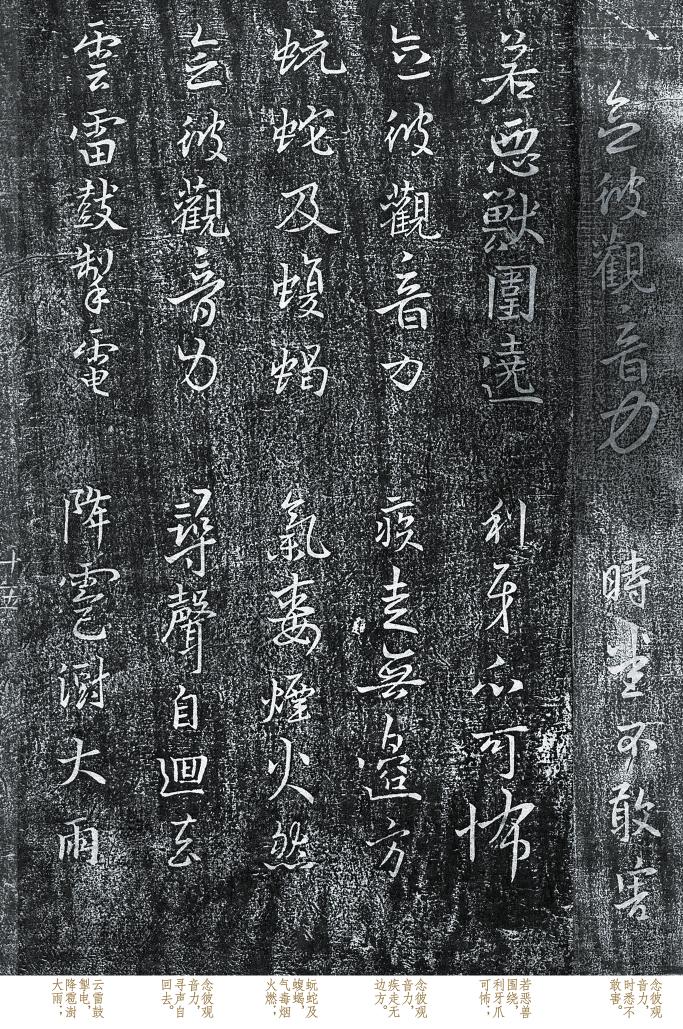 念彼觀音力 時悉不敢害
若惡獸圍遶 利牙爪可怖
念彼觀音力 疾走無邊方
蚖蛇及蝮蝎 氣毒煙火然
念彼觀音力 尋聲自迴去
雲雷鼓掣電 降雹澍大雨
十五
念彼观
音力，
时悉不
敢害。
若恶兽
围绕，
利牙爪
可怖；
念彼观
音力，
疾走无
边方。
蚖蛇及
蝮蝎，
气毒烟
火燃；
念彼观
音力，
寻声自
回去。
云雷鼓
掣电，
降雹澍
大雨；